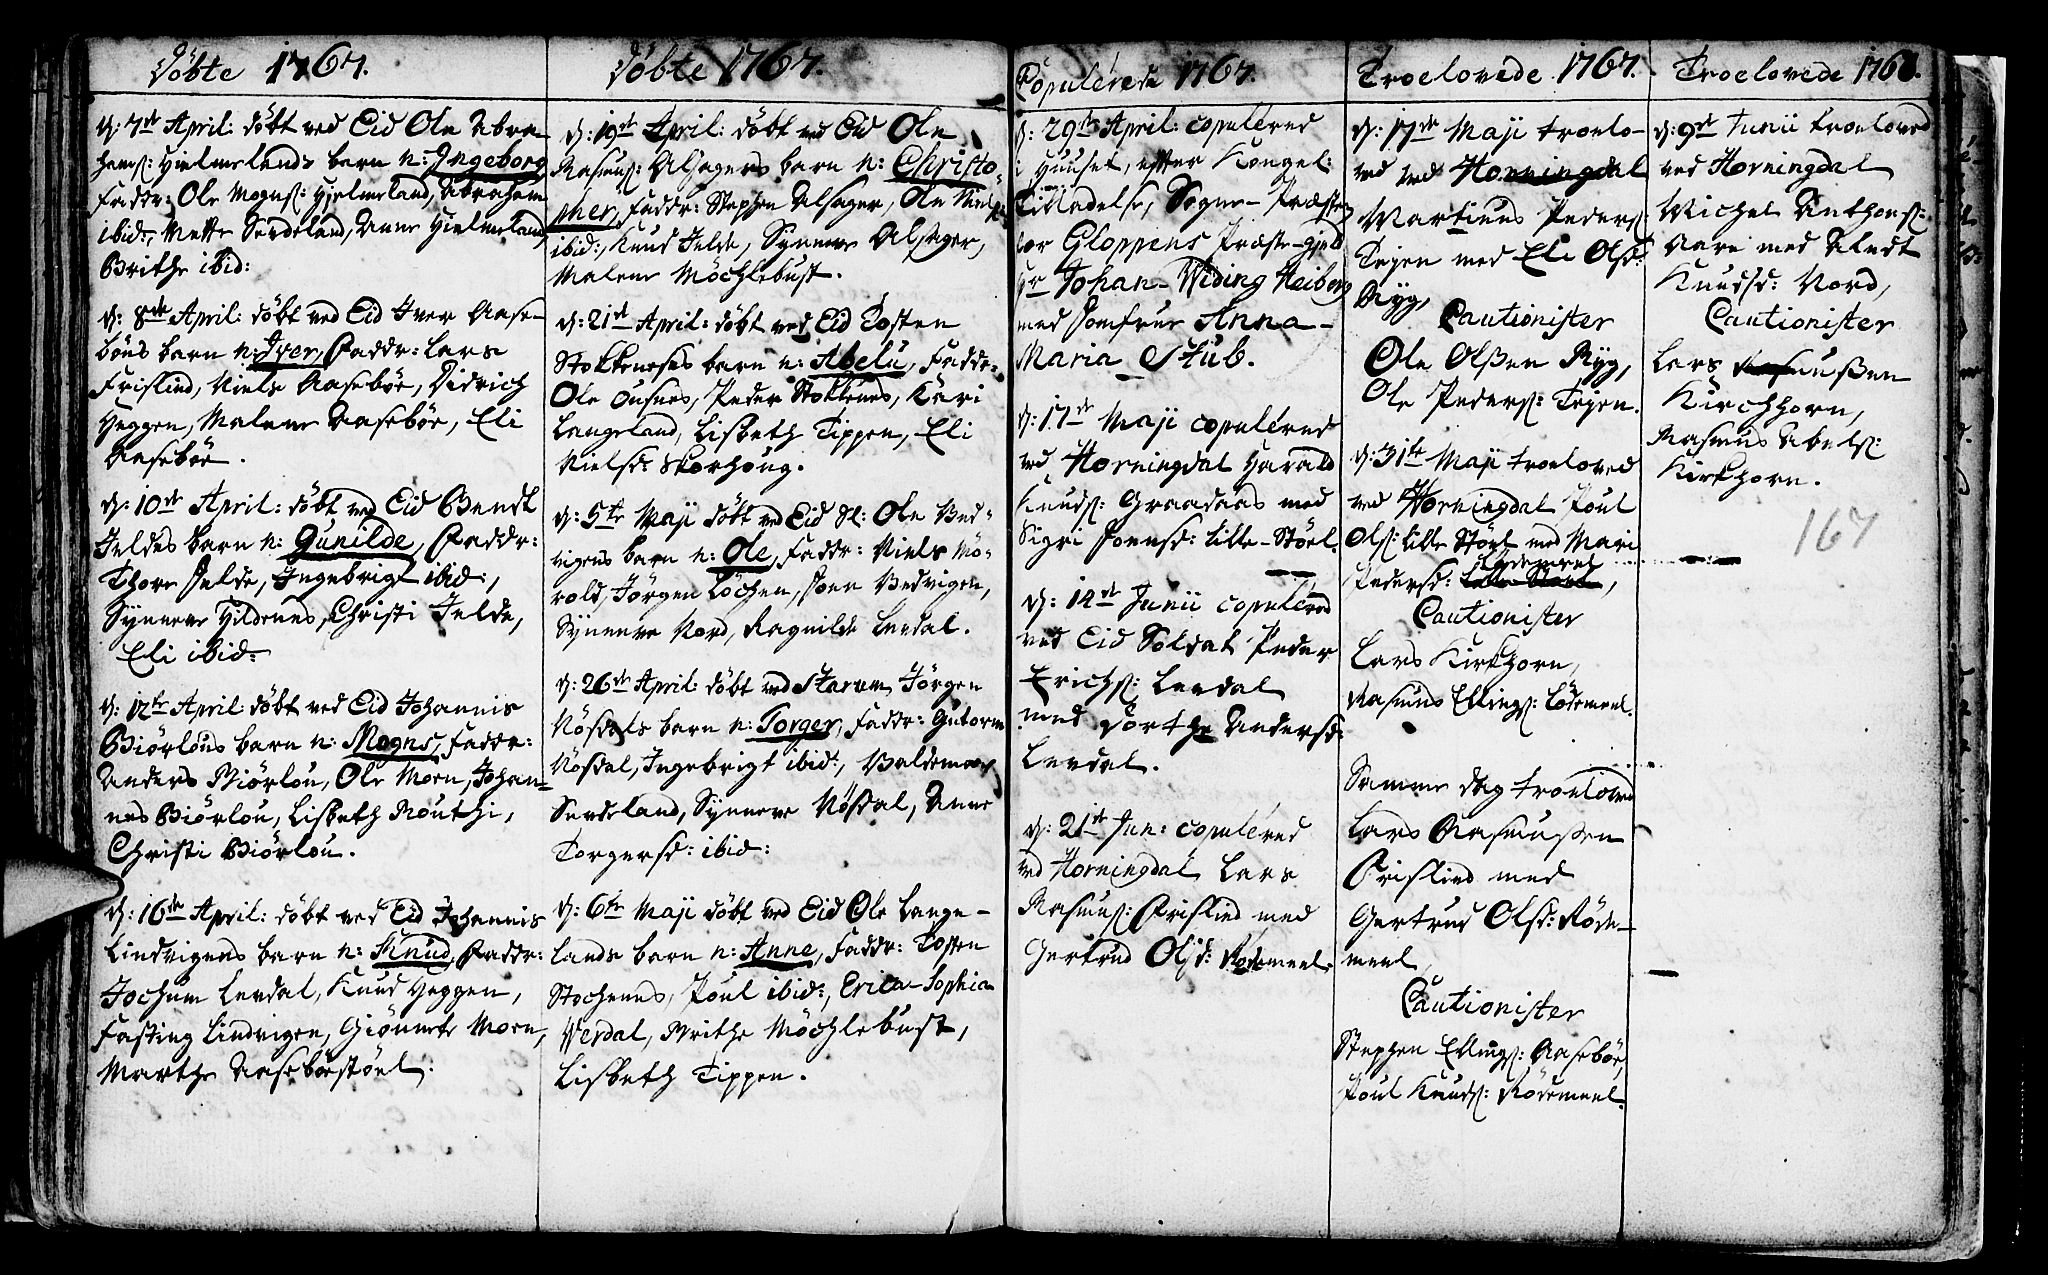 Döbte 1767.
d: 7de April: döbt ved Eid Ole Abra-
hamſ: Hielmelands barn n: Ingeborg
Faddr: Ole Mognſ: Hielmeland, Abraham
ibid:, Mette Sendeland, Anne Hielmeland,
Brithe ibid:
d: 8de April: döbt ved Eid Iver Aase-
böes barn n: Iver, Faddr: Lars
Frislied, Niels Aaseböe, Didrich
Heggen, Malene Aaseböe, Eli
Aaseböe.
d: 10de April: döbt ved Eid Bendt
Ieldes barn n: Gunilde, Faddr:
Thore Ielde, Ingebrigt ibid:,
Synneve Hildenes, Christi Ielde,
Eli ibid:
d: 12te April döbt ved Eid Johannis
Biörlous barn n: Mogns, Faddr:
Anders Biörlou, Ole Moen, Johan-
nes Biörlou, Lisbeth Routhi,
Christi Biörlou.
d: 16de April: döbt ved Eid Johannis
Lindvigens barn n: Knud, Faddr:
Jochum Levdal, Knud Heggen,
Fasting Lindvigen, Giönnete Moen,
Marthe Aaseböestöel:
Döbte 1767.
d: 19de April: döbt ved Eid Ole
Rasmuſ: Alsagers barn n: Christo-
pher, Faddr: Stephen Alsager, Ole Nielſ:
ibid:, Knud Ielde, Synneve Alsager,
Malene Möchlebust.
d: 21de April: döbt ved Eid Tosten
Stokkeneses barn n: Abelu, Faddr:
Ole Ousnes, Peder Stokkenes, Kari
Langeland, Lisbeth Tippen, Eli
Nielsd: Skorhoug.
d: 5te Maji döbt ved Eid Sl: Ole Ved-
vigens barn n: Ole, Faddr: Niels Mö-
rold, Jörgen Löchen, Joen Vedvigen,
Synneve Nord, Ragnilde Levdal.
d: 26de April: döbt ved Starum Jörgen
Nösdals barn n: Torger, Faddr: Gutorm
Nösdal, Ingebrigt ibid:, Valdemoer
Sendeland, Synneve Nösdal, Anne
Torgersd: ibid:
d: 6te Maji döbt ved Eid Ole Lange-
lands barn n: Anne, Faddr: Tosten
Stochenes, Poul ibid:, Erica-Sophia
Verdal, Brithe Möchlebust,
Lisbeth Tippen.
Copulerede 1767.
d: 29de April: copulered
i Huuset, efter Kongel:
Tilladelse, Sogne-Præsten
for Gloppens Præste-Gield
Hr Johan-Widing Heiberg
med Jomfrue Anna-
Maria Stub.
d: 17de Maji copulered
ved Horningdal Harald
Knudſ: Graadaas med
Sigri Joensd: Lille-Stöel.
d: 14de Junii copulered
ved Eid Soldat Peder
Erichſ: Levdal
med Dorthe Andersd:
Levdal.
d: 21de Jun: copulered
ved Horningdal Lars
Rasmuſ: Frislied med
Gertrud Olsd: Rödemeel.
Troelovede 1767.
d: 17de Maji troelo-
ved ved Horningdal
Martinus Pederſ:
Tejen med Eli Olsd:
Ryg,
Cautionister
Ole Olßen Ryg,
Ole Pederſ: Tejen.
d: 31te Maji troeloved
ved Horningdal Poul
Olſ: Lille Stöel med Mari
Rödemeel
Pedersd: Lille Stöel,
Cautionister
Lars Kirkhorn,
Rasmus Ellingſ: Lödemeel.
Samme dag troeloved
Lars Rasmußen
Frislied med
Gertrud Olsd: Röde-
meel,
Cautionister
Stephen Ellingſ: Aaseböe,
Poul Knudſ: Rödemeel.
Troelovede 1767.
d: 9de Junii troeloved
ved Horningdal
Michel Anthonſ:
Aare med Aledt
Knudsd: Nord,
Cautionister
Lars Rasmußen
Kirchhorn,
Rasmus Abelſ:
Kirkhorn.
167